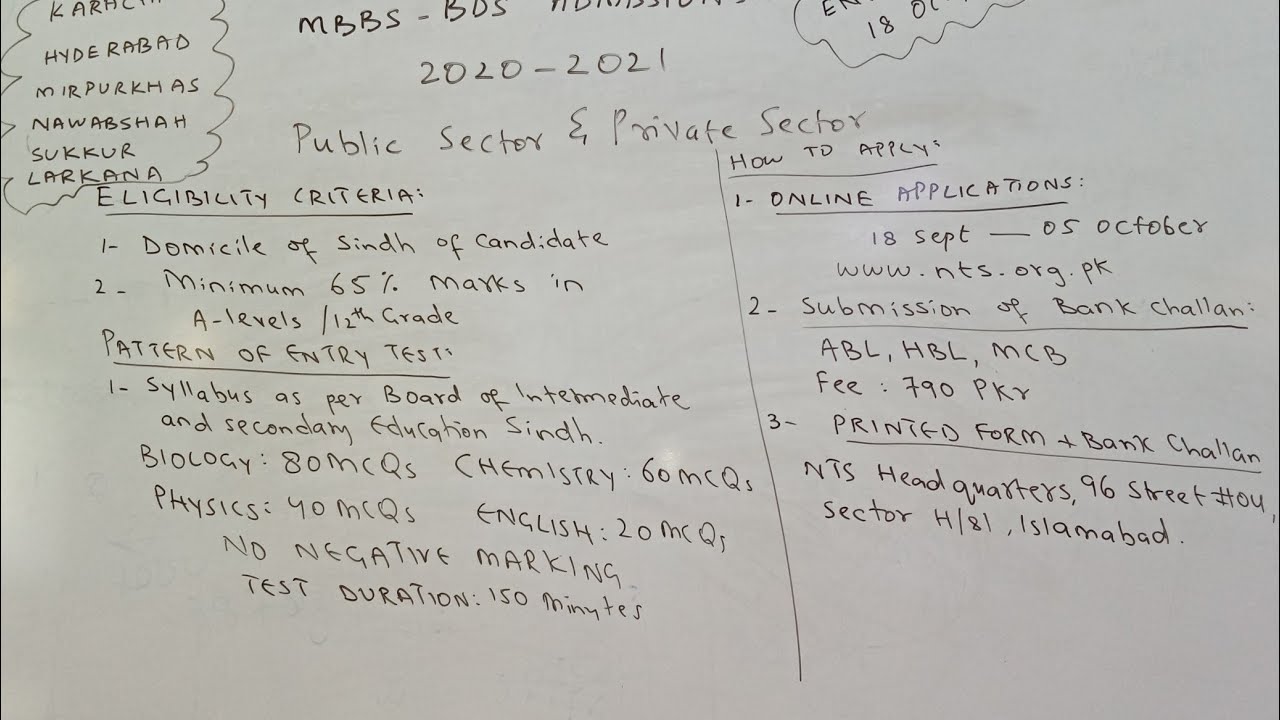 KARACHI
HYDERABAD
MIRPURKHAS
NAWABSHAH
SUKKUR
LARKANA
MBBS - BDS ADMISSION
2020-2021
Public Sector & Private Sector
18 OC
ELIGIBILITY CRITERIA:
1- Domicile of Sindh of candidate
2- Minimum 65% marks in
A-levels /12th Grade
PATTERN OF ENTRY TEST:
1- Syllabus as per Board of Intermediate
and secondary Education Sindh.
BIOLOGY: 80 MCQs CHEMISTRY: 60 MCQs
PHYSICS: 40 MCQs ENGLISH: 20 MCQs
NO NEGATIVE MARKING
TEST DURATION: 150 Minutes
HOW TO APPLY:
1- ONLINE APPLICATIONS:
18 Sept — 05 October
www.nts.org.pk
2- Submission of Bank Challan:
ABL, HBL, MCB
Fee : 790 PKr
3- PRINTED FORM + Bank Challan
NTS Headquarters, 96 Street #04,
Sector H/81, Islamabad.